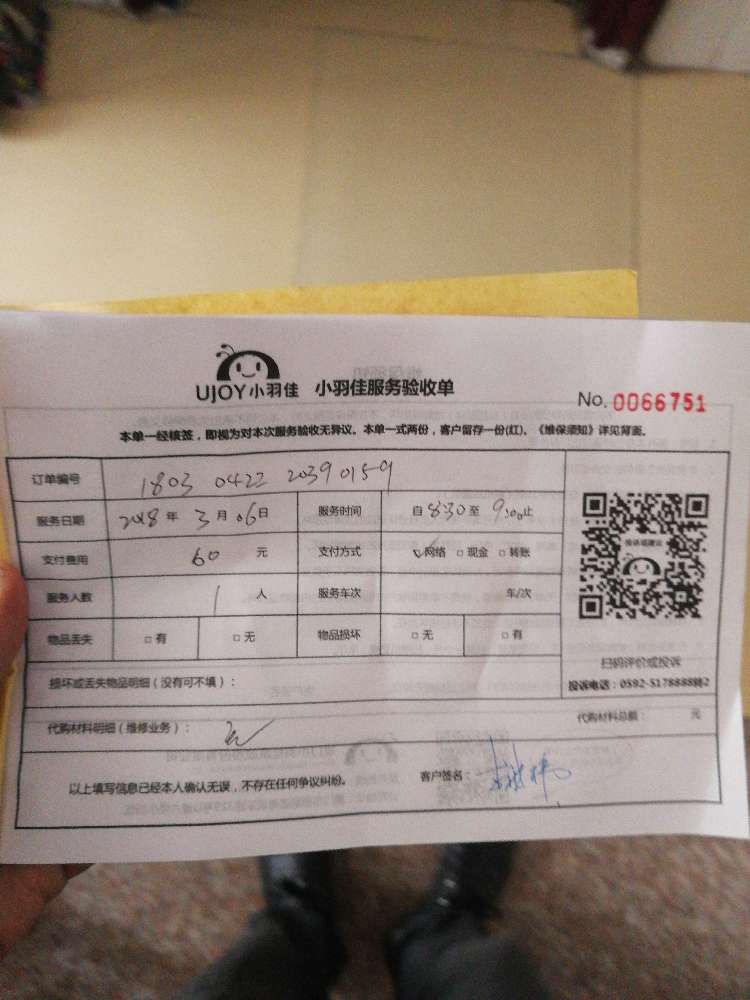 UJOY小羽佳 小羽佳服务验收单
No. 0066751
本单一经核签，即视为对本次服务验收无异议。本单一式两份，客户留存一份(红)、《维保须知》详见背面。
订单编号 1803 0422 2039 0159
服务日期 2018年 3月 06日 服务时间 自 8:30 至 9:00止
支付费用 60 元 支付方式 网络 □ 现金 □ 转账
服务人数 1 人 服务车次 车/次
物品丢失 □ 有 □ 无 物品损坏 □ 无 □ 有
投诉或建议
扫码评价或投诉
投诉电话：0592-5178888转2
损坏或丢失物品明细（没有可不填）：
代购材料明细（维修业务）： 代购材料总额： 元
以上填写信息已经本人确认无误，不存在任何争议纠纷。 客户签名：